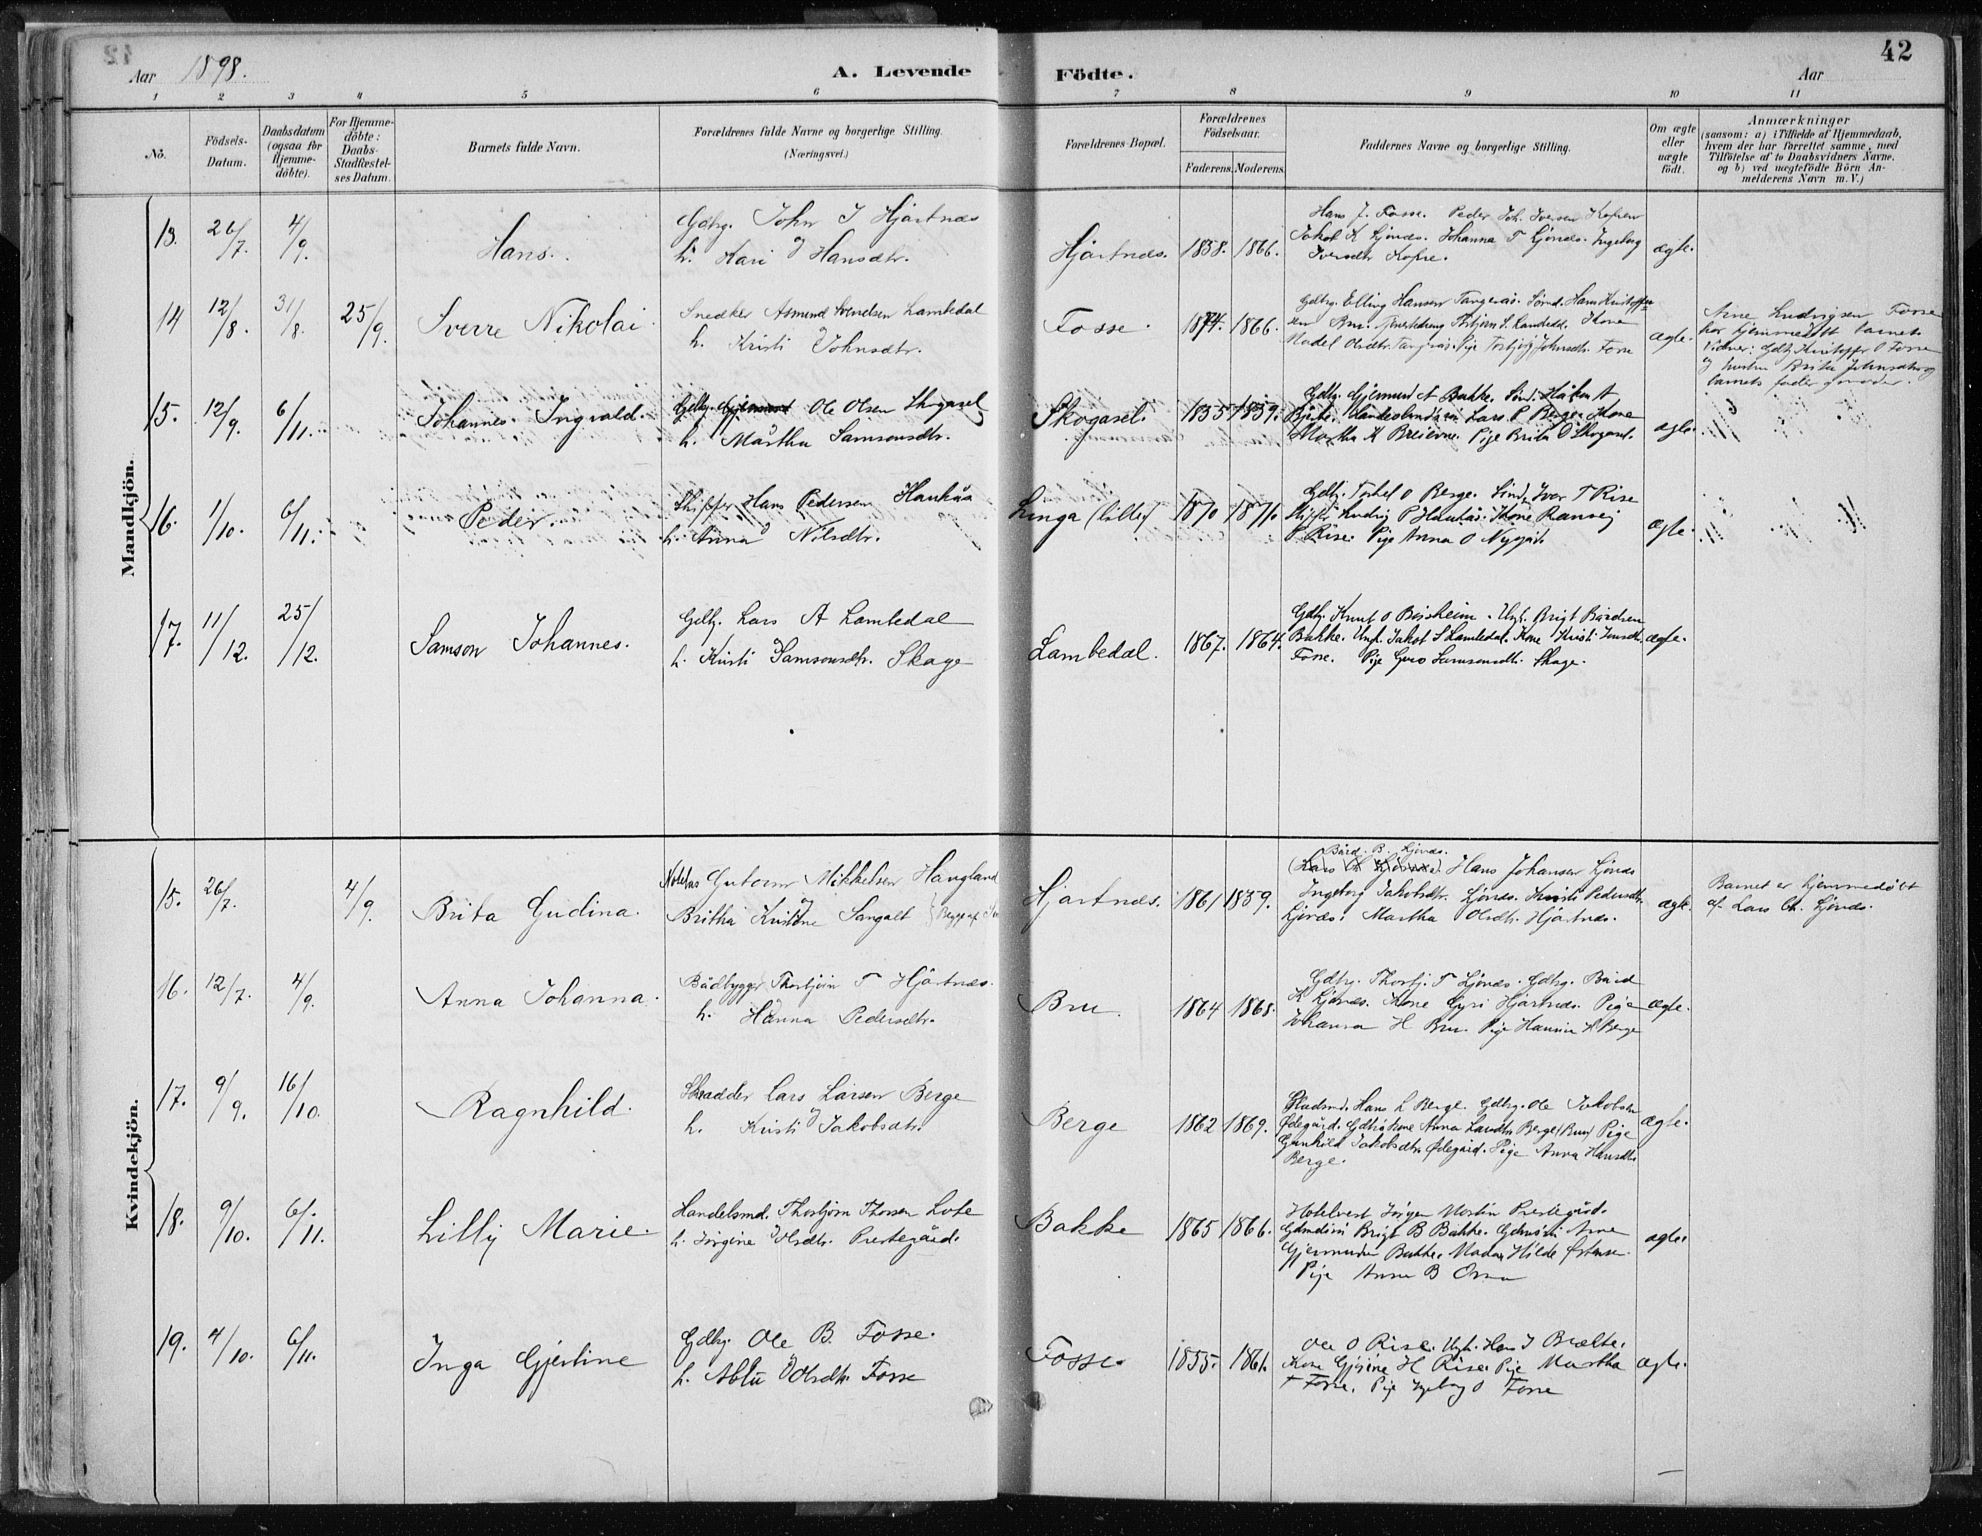 42
Aar 1898.
A. Levende Födte.
Aar
1 2 3 4 5 6 7 8 9 10 11
No.
Födsels-Datum.
Daabsdatum (ogsaa for Hjemme-döbte).
For Hjemme-döbte: Daabs-Stadfæstel-ses Datum.
Barnets fulde Navn.
Forældrenes fulde Navne og borgerlige Stilling.
(Næringsvei.)
Forældrenes Bopæl.
Forældrenes Födselsaar.
Faderens. Moderens.
Faddernes Navne og borgerlige Stilling.
Om ægte eller uægte födt.
Anmærkninger
(saasom: a) i Tilfælde af Hjemmedaab,
hvem der har forrettet samme, med
Tilföielse af to Daabsvidners Navne.
og b) ved uægtefödte Börn An-
melderens Navn m. V.)
Mandkjön.
13. 26/7. 4/9. Hans.
Gdbrg. John J Hjartnes
h. Kari Hansdtr.
Hjartnes. 1858. 1866.
Hans J. Fosse. Peder Joh. Iversen Kofren
Jakob K Ljonæs. Johanna T Ljonæs. Ingeborg
Iversdtr Kofre.
ægte.
14 12/8. 31/8. 25/9. Sverre Nikolai.
Snedker Asmund Svendsen Lambedal
h. Kristi Johnsdtr.
Fosse. 1874. 1866.
Gdbrg. Elling Hansen Tangerås. Sönd. Hans Kristoffer-
sen Bru. Tjenestedreng Thorbjörn S. Lambedal. Kone
Madel Olsdtr. Tangerås. Pige Torbjörg Johnsdtr. Fosse
ægte.
Arne Ludvigsen Fosse
har hjemmedöbt barnet.
Vidner: Gdbg Kristoffer O Fosse
og hustru Brita Johnsdtr og
barnets fader og moder.
15. 12/9. 6/11. Johannes Ingvald.
Gdbg. Ole Olsen Skogasel
h. Martha Samsonsdtr.
Skogasel. 1855 1859.
Gdbg. Gjermund A Bakke. Sönd. Håken A
Lars P Berge. Kone
Martha K Breievne. Pige Brita O Skogasel.
ægte.
16. 1/10. 6/11. Peder.
Skipper Hans Pedersen Haukås
h. Anna Nilsdtr.
Linga (lille) 1870 1876.
Gdbg. Torkel O Berge. Sönd. Iver T Rise
Skipper Ludvig P Haukås. Kone Ransej
P Rise. Pige Anna O Nygård.
ægte.
17. 11/12. 25/12. Samson Johannes.
Gdbg. Lars A Lambedal
h. Kristi Samsonsdtr. Skage
Lambedal. 1867. 1864.
Gdbg. Knut O Boisheim. Ungk. Brigt Bårdsen
Bakke. Ungk. Jakob S Lambedal. Kone Kristi Jensdtr.
Fosse. Pige Guro Samsonsdtr. Skage.
ægte.
Kvindekjön.
15. 26/7. 4/9. Brita Gudina.
Notebas Gutorm Mikkelsen Haugland
Britha Kristine Sangolt
Hjartnes. 1861 1859.
Bård. B. Ljonæs.
Hans Johansen Ljonæs
Ingeborg Jakobsdtr. Ljonæs. Kristi Pedersdtr.
Ljonæs. Martha Olsdtr. Hjartnæs.
ægte.
Barnet er hjemmedöbt
af Lars Ch. Ljonæs.
16. 12/7. 4/9. Anna Johanna.
Bådbygger Thorbjörn T Hjartnæs.
h. Hanna Pedersdtr.
Bru. 1864 1868.
Gdbrg. Thorbj. T Ljonæs. Gdbrg. Bård
K Ljonæs. Kone Gyri Hjartnæs. Pige
Johanna H Bru. Pige Hannie K Berge
ægte.
17. 9/9. 16/10. Ragnhild.
Skradder Lars Larsen Berge
h. Kristi Jakobsdtr.
Berge 1862 1869.
Hans L Berge. Gdbrg. Ole Jakobsen
Ødegård. Gdbrskone Anna Larsdtr Berge (Bru) Pige
Gunhild Jakobsdtr. Ødegård. Pige Anna Hansdtr
Berge.
ægte.
18. 9/10. 6/11. Lilly Marie.
Handelsmd. Thorbjörn Thorsen Lote
h. Jörgine Olsdtr. Prestegård.
Bakke 1865 1866.
Hotelvert Jörgen Martin Prestegård.
Brigt B Bakke. Arne
Gjermundsen Bakke. Madam Hilde Østensen.
Pige Anna B
ægte.
19. 4/10. 6/11. Inga Gjertine
Gdbg. Ole B. Fosse.
h. Ablu Olsdtr. Fosse
Fosse. 1855. 1861.
Ole O Rise. Ungk. Hans J Brække.
Kone Gjörine H Rise. Pige Martha
T Fosse. Pige Ingeborg O Fosse
ægte.